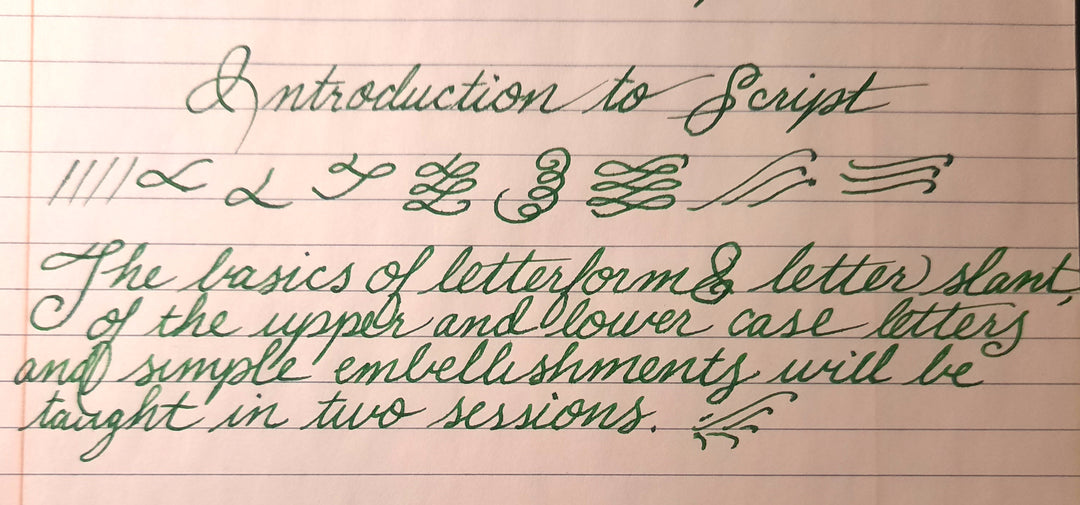 Introduction to Script
The basics of letterform & letter slant,
of the upper and lower case letters
and simple embellishments will be
taught in two sessions.